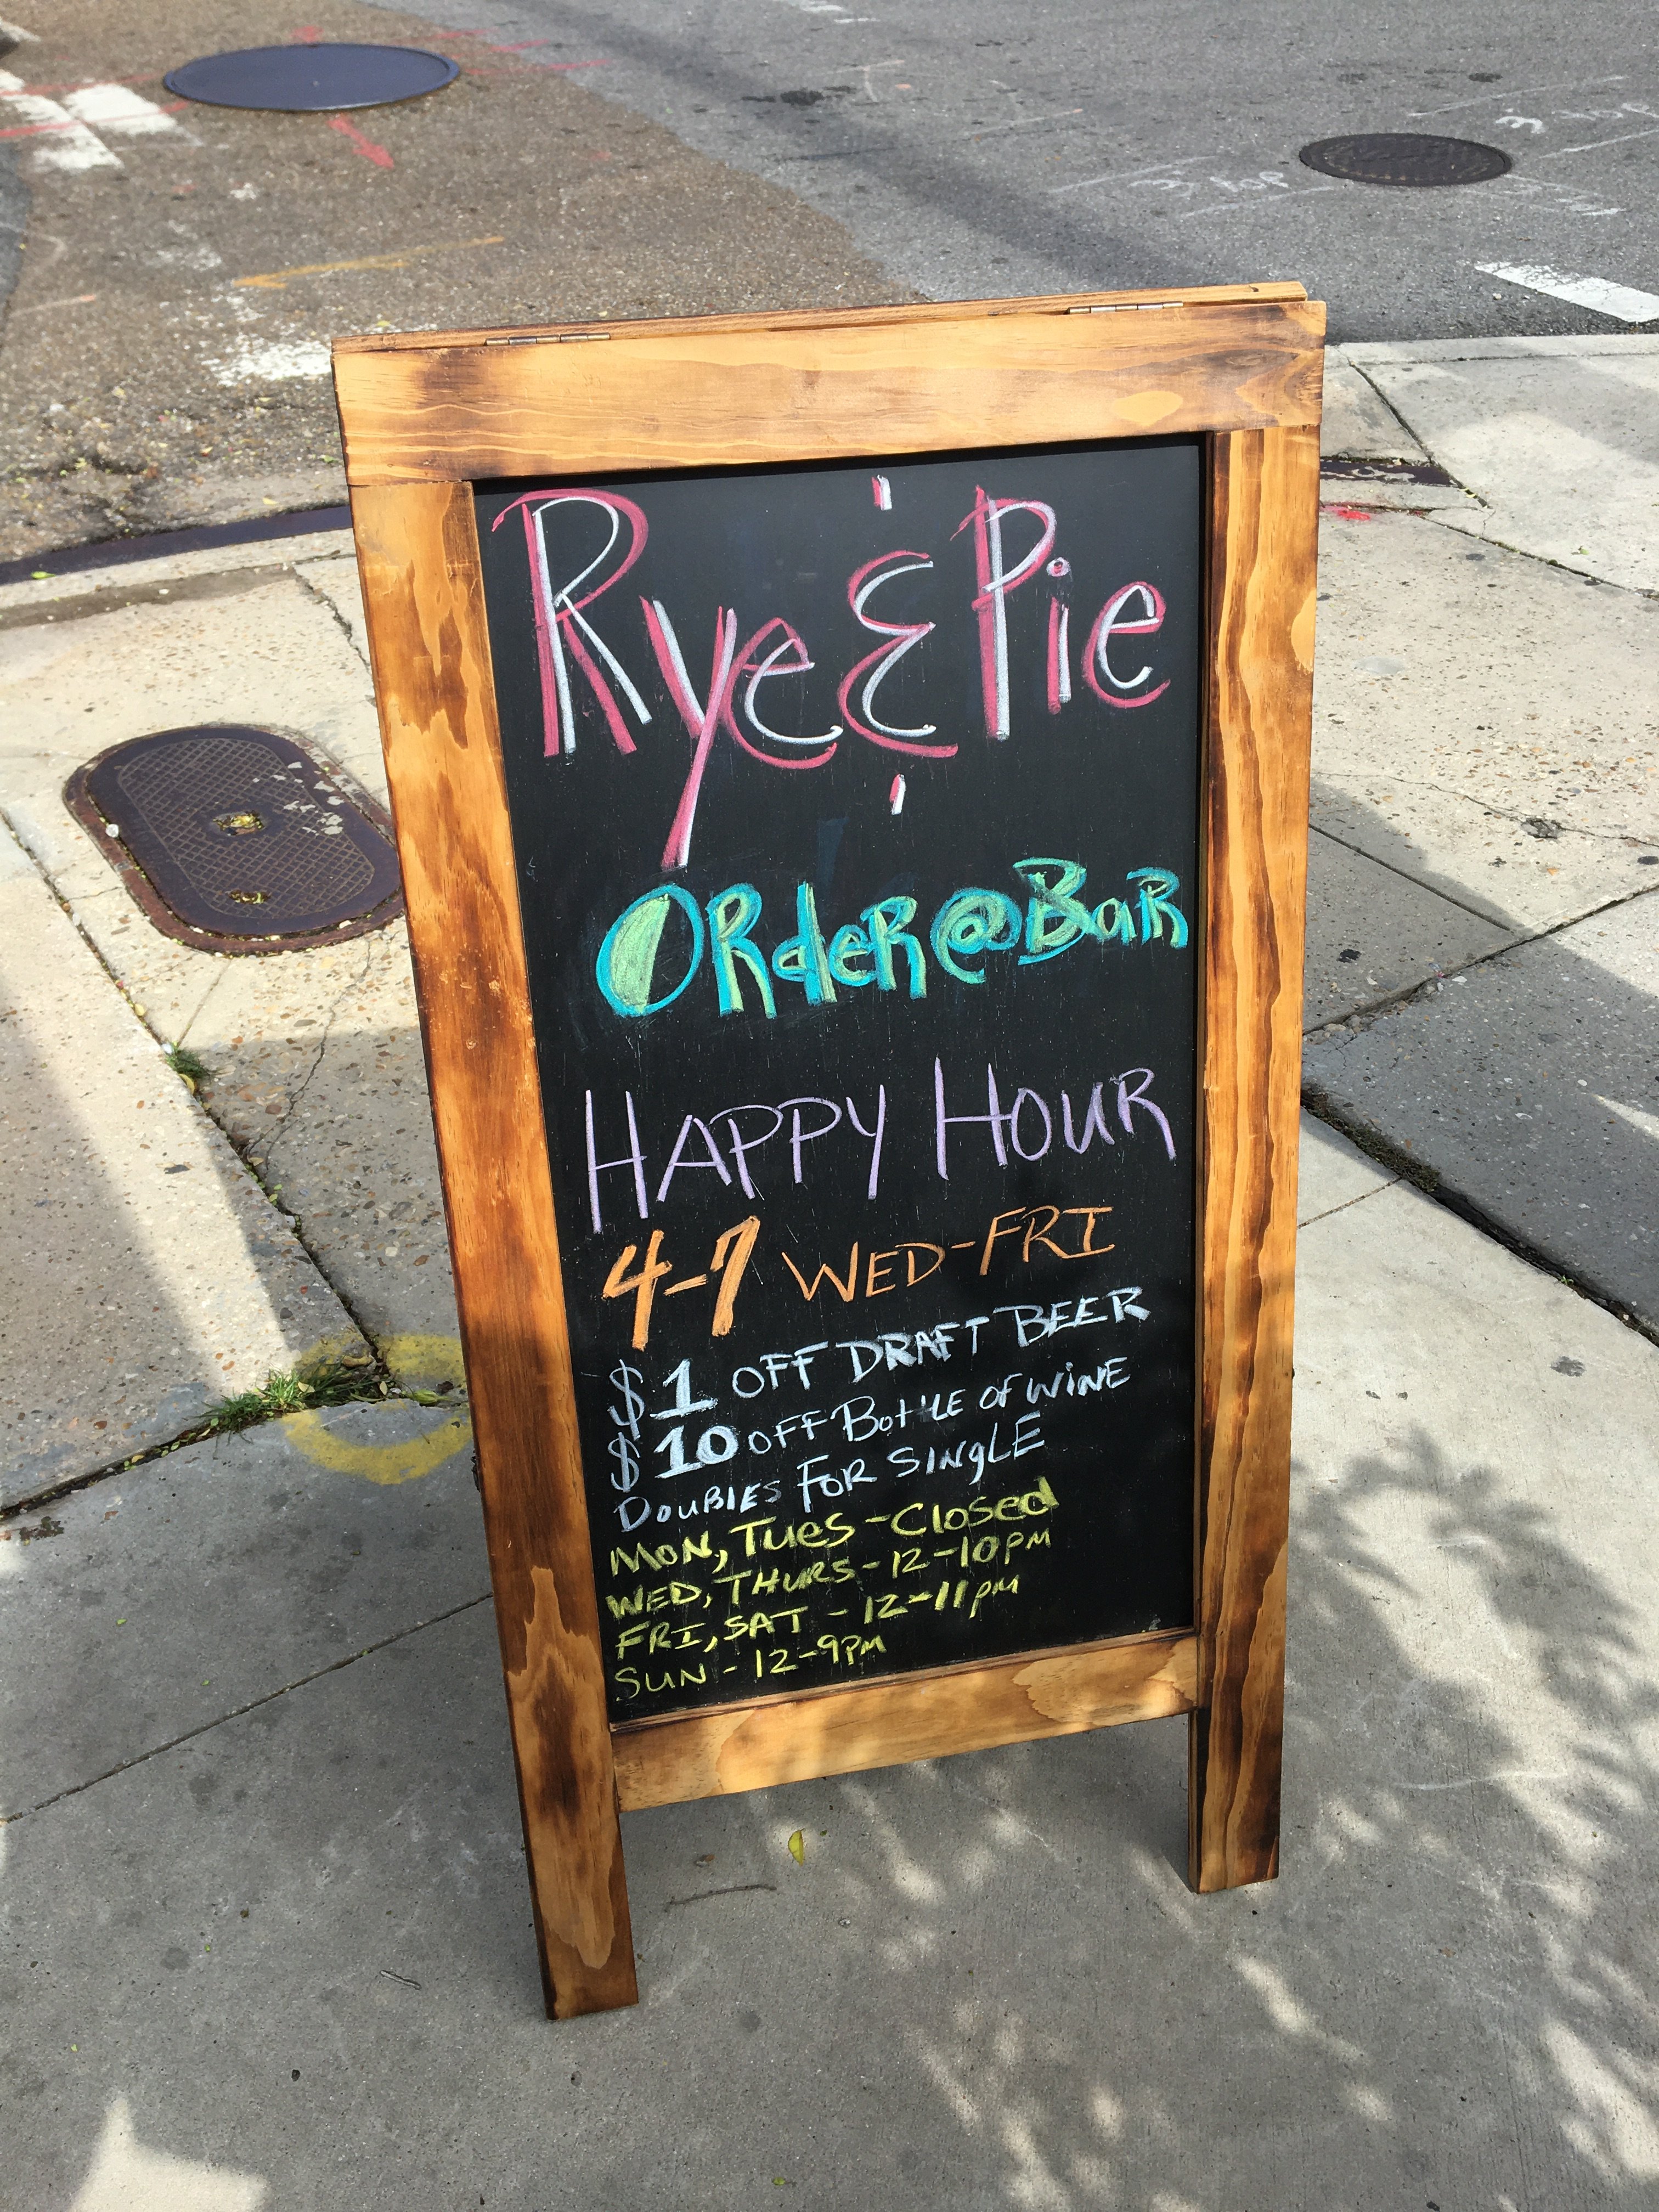 Rye & Pie
Order @ Bar
HAPPY HOUR
4-7 WED-FRI
$1 OFF DRAFT BEER
$10 OFF BOttLE OF WiNE
DOUBlES FOR SINgLE
MON, TUes - Closed
WED, THURS - 12-10PM
FRI, SAT - 12-11PM
SUN - 12-9PM